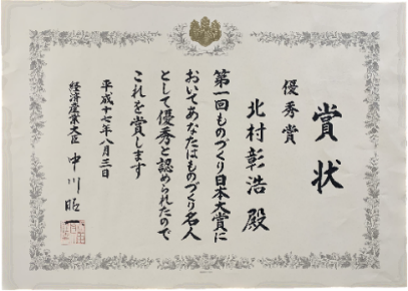 賞状
優秀賞
北村彰浩 殿
第一回ものづくり日本大賞に
おいてあなたはものづくり名人
として優秀と認められたので
これを賞します
平成十七年八月三日
経済産業大臣 中川昭一